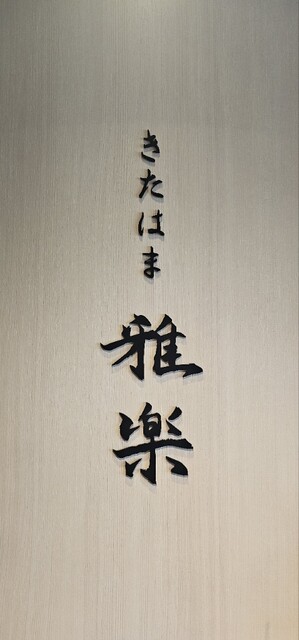 きたはま
雅楽